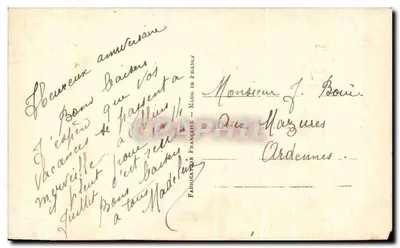 Heureux anniversaire
Bons baisers
J'espère que vos
vacances se passent à
merveille
pour
Juillet c'est
Bons baisers
à tous
Madeleine
FABRICATION FRANÇAISE - MADE IN FRANCE
Monsieur J.
Aux Mazures
Ardennes